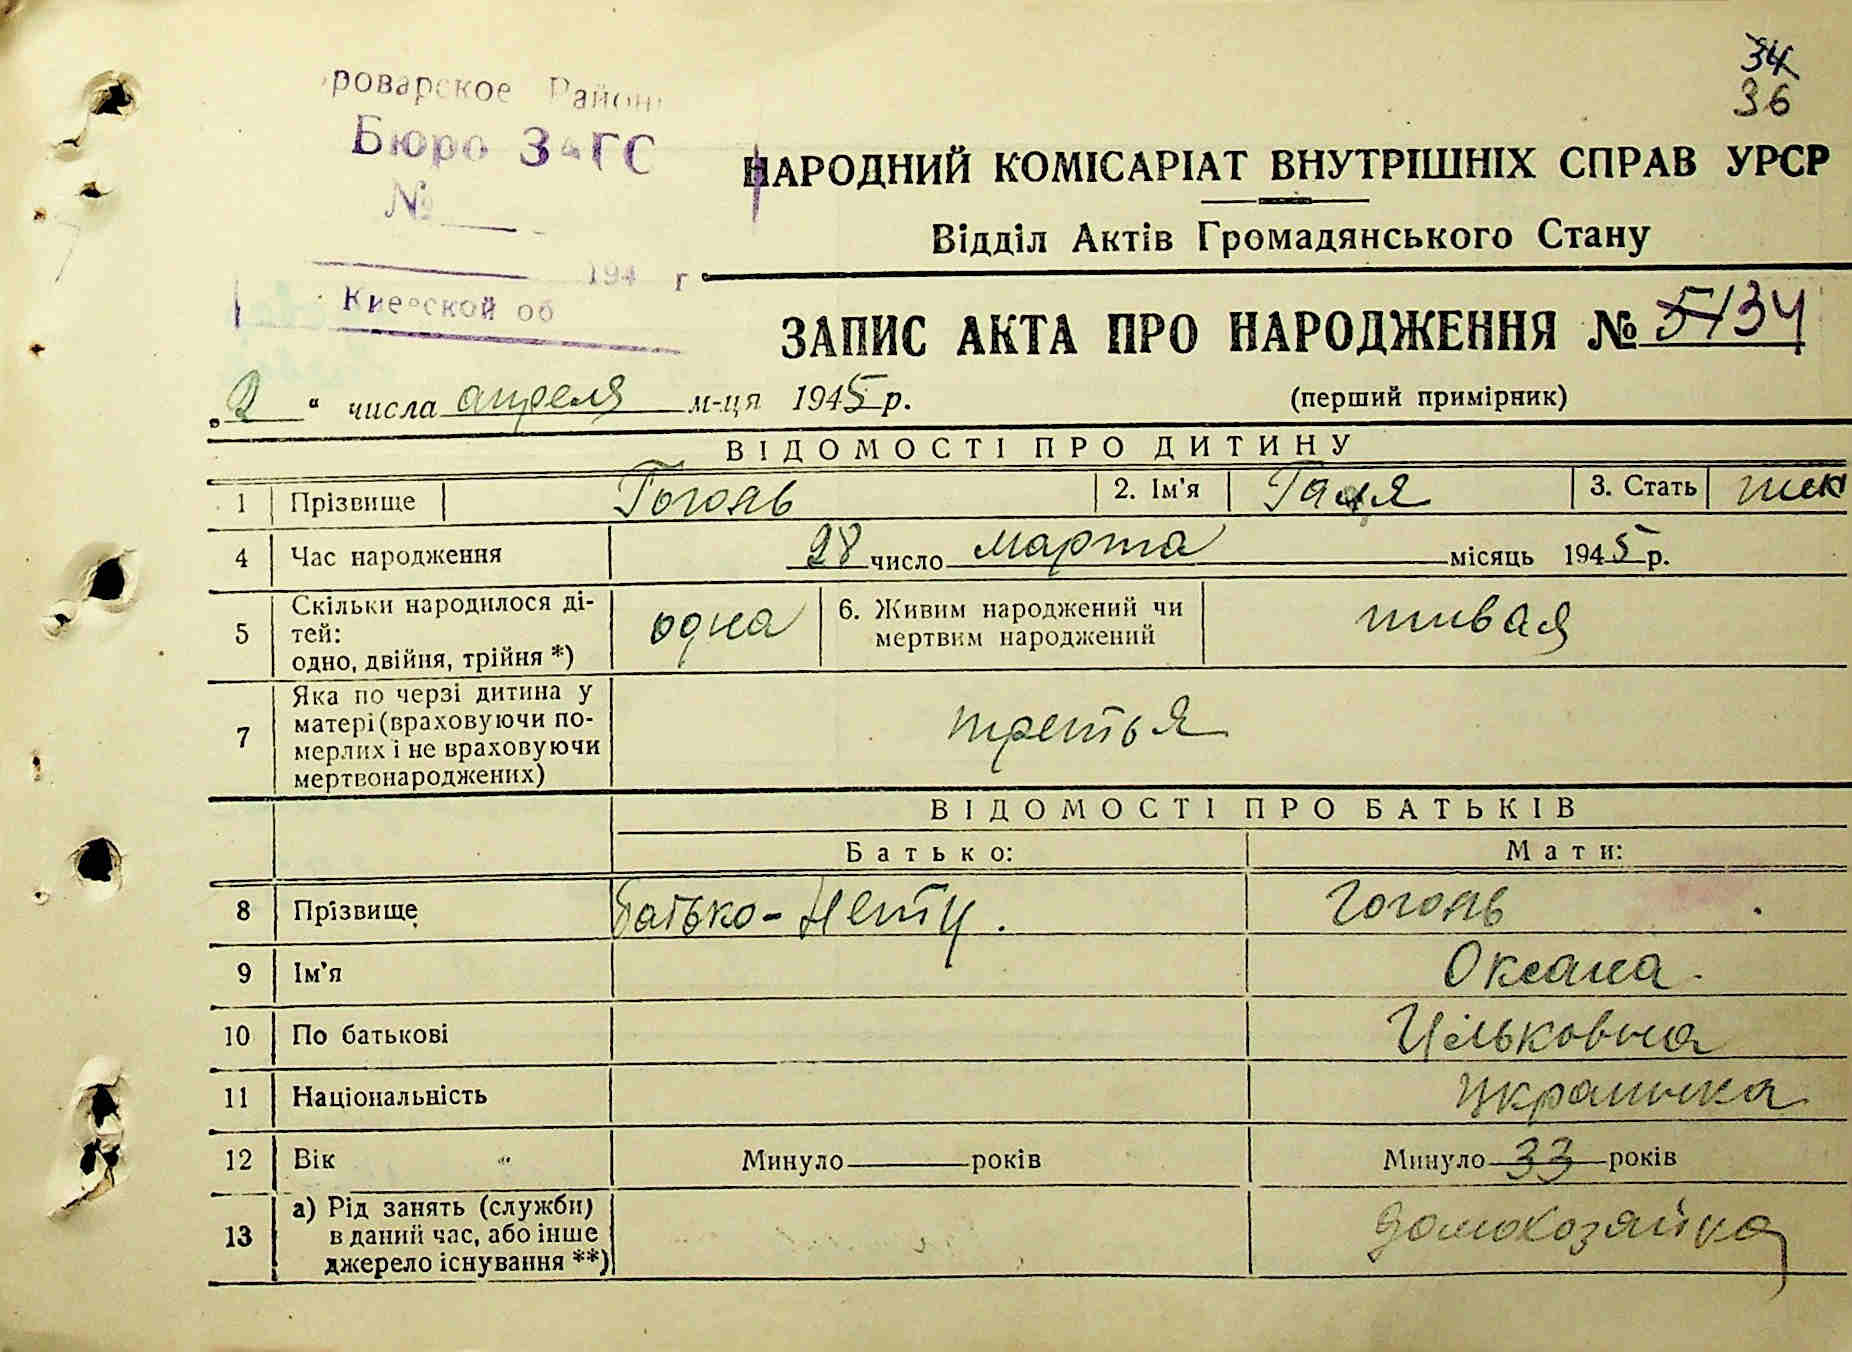 34
36
роварское Район
Бюро ЗАГС
№
194 г
Киевской об
НАРОДНИЙ КОМІСАРІАТ ВНУТРІШНІХ СПРАВ УРСР
Відділ Актів Громадянського Стану
ЗАПИС АКТА ПРО НАРОДЖЕННЯ № 5134
„2“ числа апреля м-ця 1945 р.
(перший примірник)
ВІДОМОСТІ ПРО ДИТИНУ
1 Прізвище Гоголь 2. Ім'я Галя 3. Стать жек
4 Час народження 28 число марта місяць 1945 р.
5 Скільки народилося ді-
тей:
одно, двійня, трійня *) одна
6. Живим народжений чи
мертвим народжений живая
7 Яка по черзі дитина у
матері (враховуючи по-
мерлих і не враховуючи
мертвонароджених) третья
ВІДОМОСТІ ПРО БАТЬКІВ
Батько: Мати:
8 Прізвище батько-нету. Гоголь
9 Ім'я Оксана
10 По батькові
11 Національність украинка
12 Вік Минуло років Минуло 33 років
13 а) Рід занять (служби)
в даний час, або інше
джерело існування **) домохозяйка